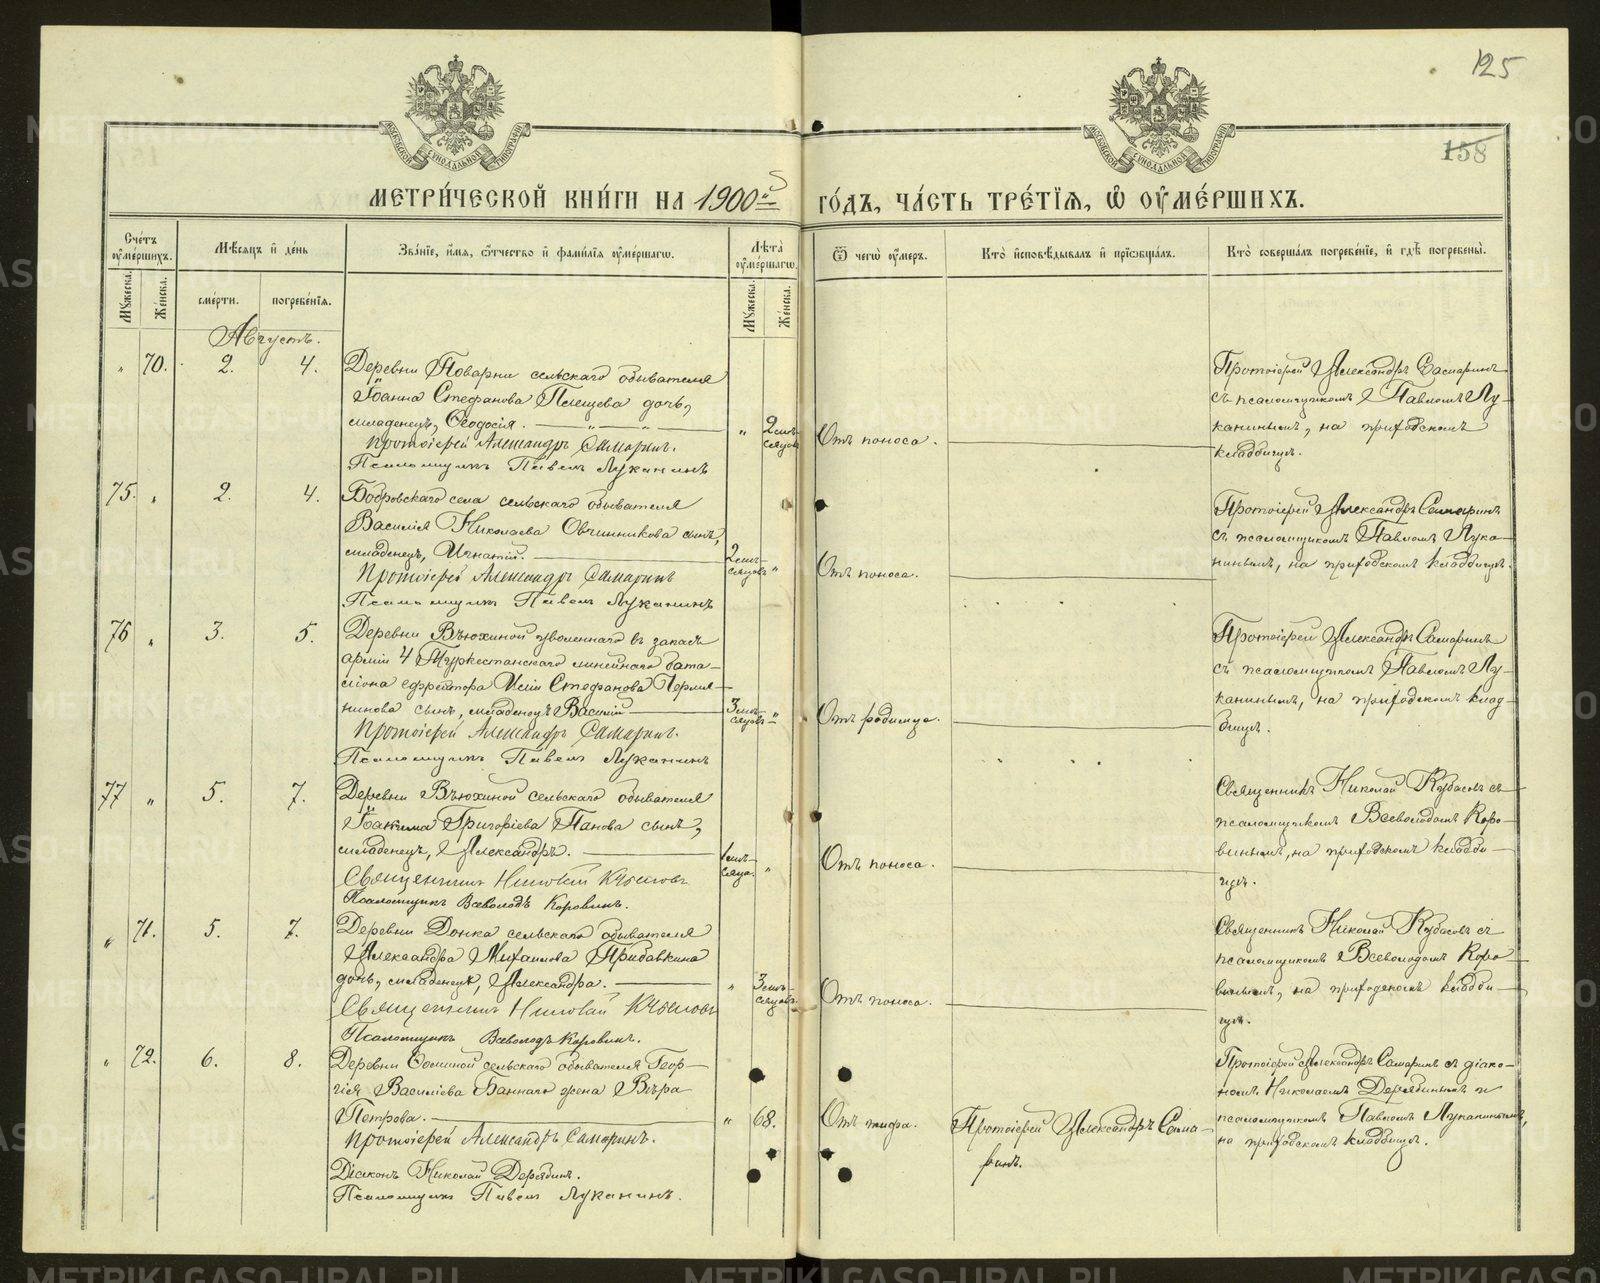 125
158
МЕТРИ́ЧЕСКОЙ КНИ́ГИ НА 1900й
ГО́ДЪ, ЧА́СТЬ ТРЕ́ТЇѦ, Ѡ ОУ҆МЕ́РШИХЪ.
Сче́тъ оу҆ме́ршихъ.
Мꙋ́жеска.
Же́нска.
Мѣ́сѧцъ и҆ де́нь
сме́рти.
погребе́нїѧ.
Зва́нїе, и҆́мѧ, ѻ҆́тчество и҆ фами́лїѧ оу҆ме́ршагѡ.
Лѣ́та оу҆ме́ршагѡ.
Мꙋ́жеска.
Же́нска.
Ѿ чегѡ̀ оу҆́меръ.
Кто̀ и҆сповѣ́дывалъ и҆ прїѡбща́лъ.
Кто̀ соверша́лъ погребе́нїе, и҆ гдѣ̀ погребены̀.
Августъ.
" 70. 2. 4.
Деревни Поварни сельскаго обывателя
Іоанна Стефанова Плещева дочь,
младенецъ, Ѳеодосія. " 2 мѣсяцовъ
Протоіерей Александръ Самаринъ.
Псаломщикъ Павелъ Луканинъ
Отъ поноса.
Протоіерей Александръ Самаринъ
съ псаломщикомъ Павломъ Лу-
канинымъ, на приходскомъ
кладбищѣ.
75. " 2. 4.
Бобровскаго села сельскаго обывателя
Василія Николаева Овчинникова сынъ,
младенецъ, Игнатій. 2 мѣсяцовъ "
Протоіерей Александръ Самаринъ
Псаломщикъ Павелъ Луканинъ
Отъ поноса.
Протоіерей Александръ Самаринъ
съ псаломщикомъ Павломъ Лука-
нинымъ, на приходскомъ кладбищѣ.
76 " 3. 5.
Деревни Вьюхиной уволеннаго въ запасъ
арміи 4 Туркестанскаго линейнаго бата-
ліона ефрейтора Иліи Стефанова Пермя-
нинова сынъ, младенецъ Василій 3 мѣсяцовъ "
Протоіерей Александръ Самаринъ.
Псаломщикъ Павелъ Луканинъ
Отъ родимца.
Протоіерей Александръ Самаринъ
съ псаломщикомъ Павломъ Лу-
канинымъ, на приходскомъ клад-
бищѣ.
77 " 5. 7.
Деревни Вьюхиной сельскаго обывателя
Іоакима Григоріева Панова сынъ,
младенецъ, Александръ. 1 мѣсяца. "
Священникъ Николай Кубасовъ
Псаломщикъ Всеволодъ Коровинъ.
Отъ поноса.
Священникъ Николай Кубасовъ съ
псаломщикомъ Всеволодомъ Коро-
винымъ, на приходскомъ кладби-
щѣ.
" 71. 5. 7.
Деревни Донка сельскаго обывателя
Александра Михаилова Прибавкина
дочь, младенецъ, Александра. " 3 мѣсяцовъ.
Священникъ Николай Кубасовъ
Псаломщикъ Всеволодъ Коровинъ.
Отъ поноса.
Священникъ Николай Кубасовъ съ
псаломщикомъ Всеволодомъ Коро-
винымъ, на приходскомъ кладби-
щѣ.
" 72. 6. 8.
Деревни Ѳоминой сельскаго обывателя Геор-
гія Василіева Баннаго жена Вѣра
Петрова. " 68.
Протоіерей Александръ Самаринъ.
Діаконъ Николай Дерябинъ.
Псаломщикъ Павелъ Луканинъ.
Отъ тифа.
Протоіерей Александръ Сама-
ринъ.
Протоіерей Александръ Самаринъ съ діако-
номъ Николаемъ Дерябинымъ и
псаломщикомъ Павломъ Луканинымъ,
на приходскомъ кладбищѣ.
METRIKI.GASO-URAL.RU